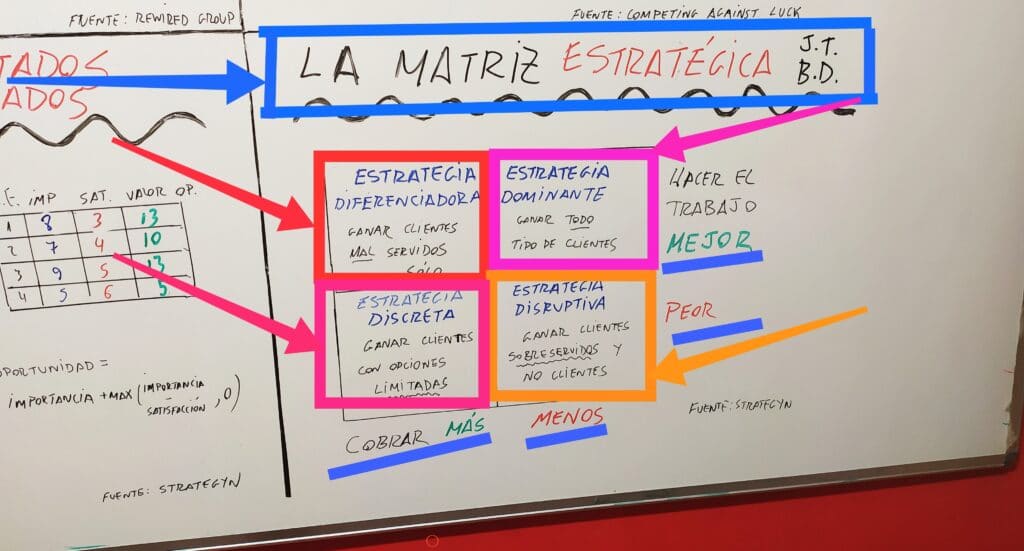 FUENTE: REWIRED GROUP
TADOS
ADOS
.E. IMP SAT. VALOR OP.
1 8 3 13
2 7 4 10
3 9 5 13
4 5 6 5
OPORTUNIDAD =
IMPORTANCIA + MAX (IMPORTANCIA - SATISFACCIÓN, 0)
FUENTE: STRATEGYN
FUENTE: COMPETING AGAINST LUCK
LA MATRIZ ESTRATÉGICA J.T.
B.D.
ESTRATEGIA
DIFERENCIADORA
GANAR CLIENTES
MAL SERVIDOS
SÓLO
ESTRATEGIA
DOMINANTE
GANAR TODO
TIPO DE CLIENTES
HACER EL
TRABAJO
MEJOR
ESTRATEGIA
DISCRETA
GANAR CLIENTES
CON OPCIONES
LIMITADAS
ESTRATEGIA
DISRUPTIVA
GANAR CLIENTES
SOBRESERVIDOS Y
NO CLIENTES
PEOR
COBRAR MÁS
MENOS
FUENTE: STRATEGYN